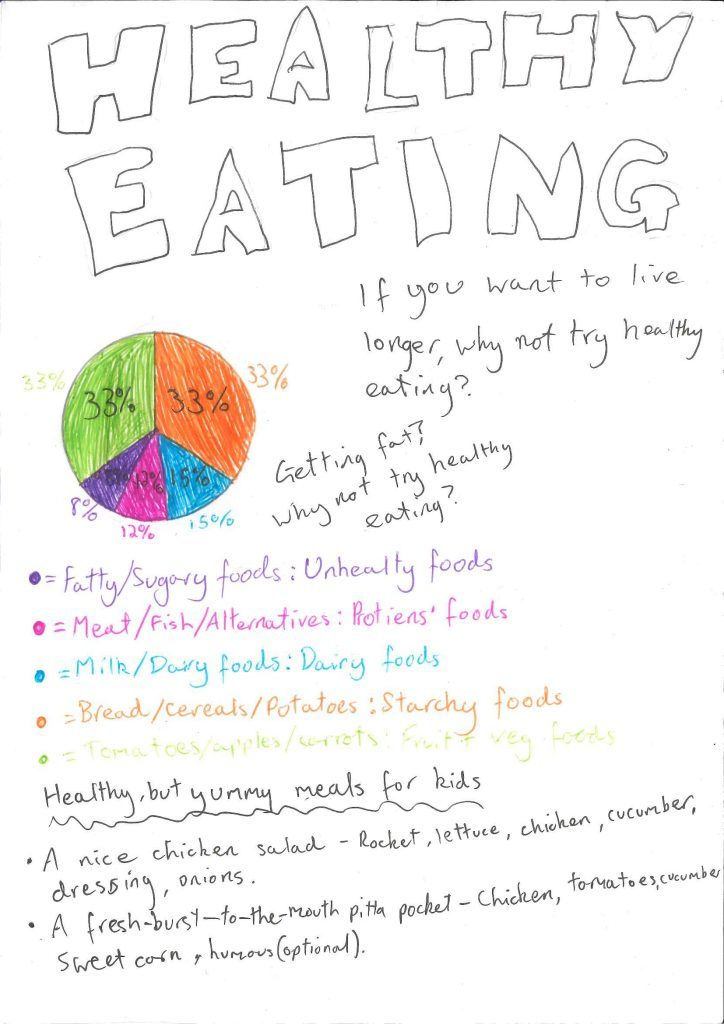 HEALTHY
EATING
If you want to live
longer, why not try healthy
eating?
33%
33%
33%
33%
8%
12%
15%
8%
12%
15%
Getting fat?
why not try healthy
eating?
= Fatty/Sugary foods: Unhealty foods
= Meat/Fish/Alternatives: Protiens' foods
= Milk/Dairy foods: Dairy foods
= Bread/cereals/Potatoes: Starchy foods
= Tomatoes/apples/carrots: Fruit + veg foods
Healthy, but yummy meals for kids
• A nice chicken salad - Rocket, lettuce, chicken, cucumber,
dressing, onions.
• A fresh-burst-to-the-mouth pitta pocket - Chicken, tomatoes, cucumber
Sweet corn, humous (optional).